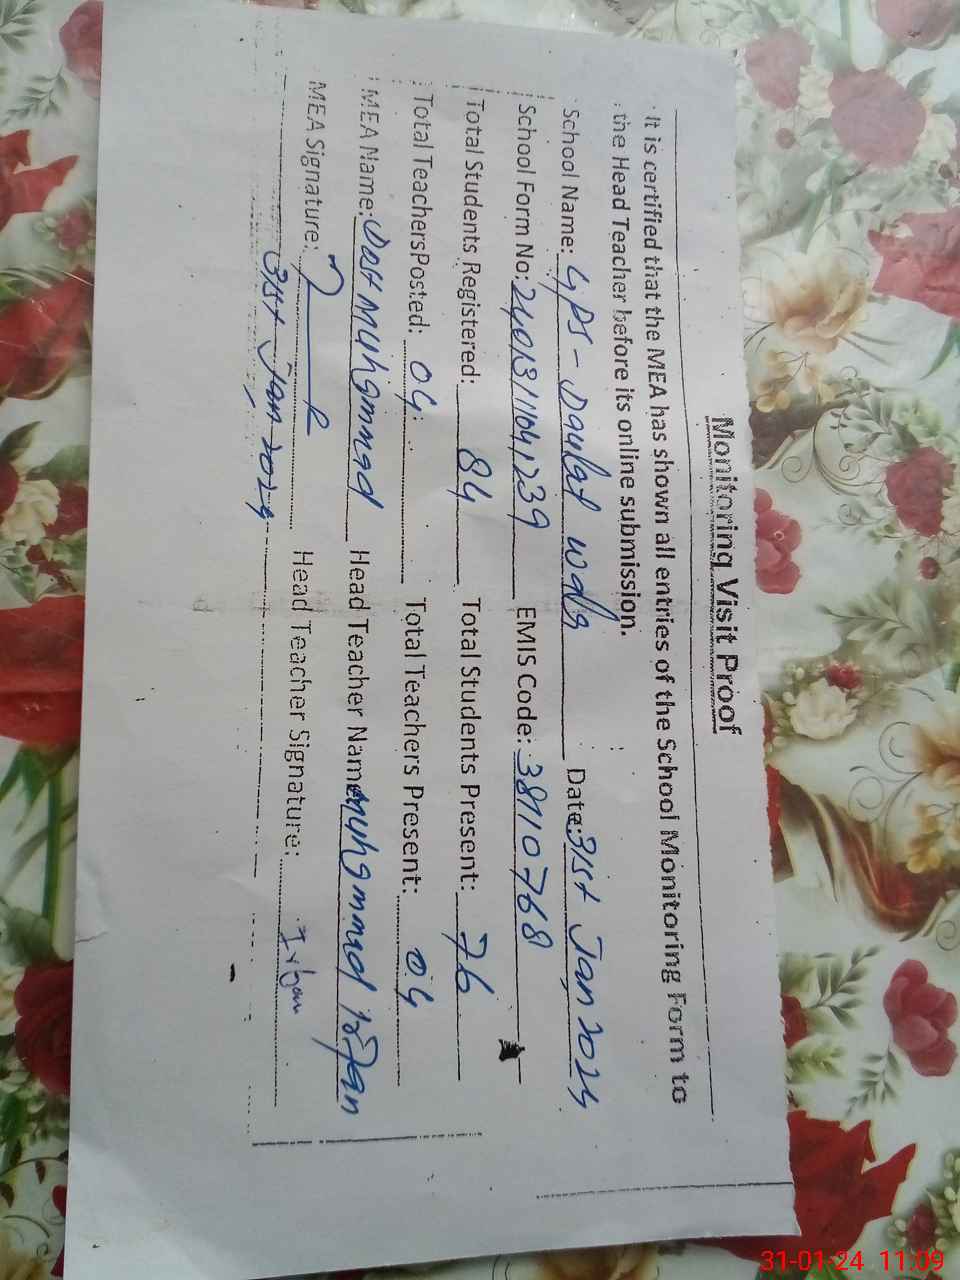 Monitoring Visit Proof
It is certified that the MEA has shown all entries of the School Monitoring Form to
the Head Teacher before its online submission.
School Name: GPS - Daulat wala Date: 31st Jan 2024
School Form No: EMIS Code: 38110768
Total Students Registered: 84 Total Students Present: 76
Total TeachersPosted: 04 Total Teachers Present: 04
MEA Name: Dost Muhammad Head Teacher Name Muhammad Irfan
MEA Signature: Head Teacher Signature: Irfan
31st Jan 2024
31-01-24 11:09